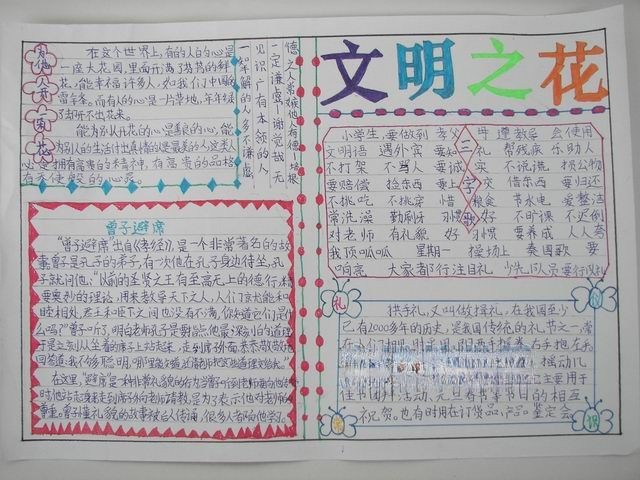 文明之花
为他人开一朵花
在这个世界上,有的人的心是
一座大花园,里面开满了芬芳的鲜
花,能幸福许多人,如我们中国的
雷锋。而有人的心是一片草地,年年岁
岁
能为别人开花的心是善良的心,能
为别人的生活付出真情的是最美的人,这类人
必定拥有高贵的本
有
一知半解的人,多不谦虚;
见识广有本领的人,
一定谦虚。谢觉哉
小学生 要做到 孝父母 遵教导 会使用
文明语 遇外宾 要知礼 帮残疾 乐助人
不打架 不骂人 要诚实 不说谎 损公物
要赔偿 拾东西 要上交 借东西 要归还
不挑吃 不挑穿 惜粮食 节水电 爱整洁
常洗澡 勤刷牙 习惯好 不旷课 不迟到
对老师 有礼貌 好习惯 要养成 人人夸
我顶呱呱 星期一 操场上 奏国歌 要
响亮 大家都行注目礼 少先队员要行队礼
三字歌
曾子避席
“曾子避席”出自《孝经》,是一个非常著名的故
事。曾子是孔子的弟子,有一次他在孔子身边侍坐,孔
子就问他:“以前的圣贤之王有至高无上的德行,精
要奥妙的理论,用来教导天下之人,人们就能和
睦相处,君王和臣下之间也没有不满,你知道它们是什
么吗?”曾子听了,明白老师孔子是要指点他最深刻的道理,
于是立刻从坐着的席子上站起来,走到席子外面,恭恭敬敬地
回答道:“我不够聪明,哪里能知道,还请老师把这些道理教给我。”
在这里,避席是一种非常礼貌的行为,当曾子听到老师要向他传授
时,他站起身来,走到席子外向老师请教,是为了表示他对老师的
尊重。曾子懂礼貌的故事被后人传诵,很多人都向他学习。
礼
拱手礼,又叫做揖礼,在我国至少
已有2000多年的历史,是我国传统的礼节之一,常
在人们相见时采用。即两手握拳,右手抱左手
摇动几
主要用于
佳节团拜活动、元旦春节等节日的相互
祝贺。也有时用在订货品、产品、鉴定会